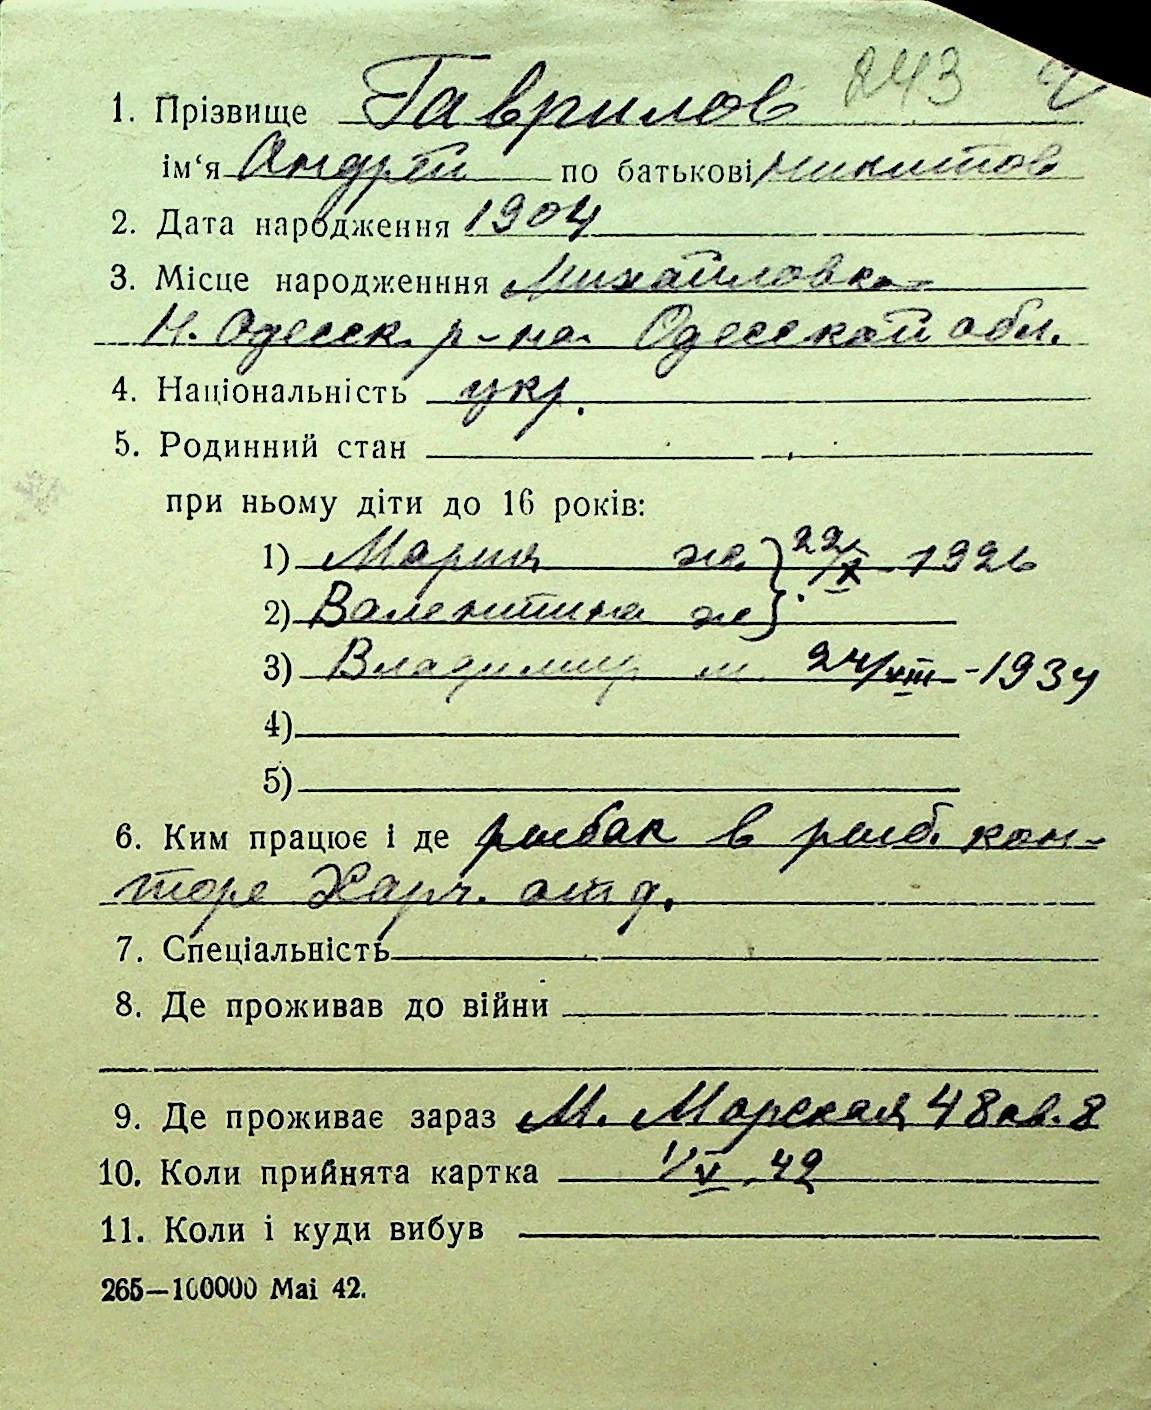 243
1. Прізвище Гаврилов
ім‘я Андрей по батькові Никитов
2. Дата народження 1904
3. Місце народженння Михайловка
Н. Одесск. р-на Одесской обл.
4. Національність укр.
5. Родинний стан
при ньому діти до 16 років:
1) Мария ж } 22/X - 1926
2) Валентина ж }
3) Владимир м. 24/VIII - 1934
4)
5)
6. Ким працює і де рыбак в рыб. кон-
торе Харч. отд.
7. Спеціальність
8. Де проживав до війни
9. Де проживає зараз М. Морская 48 кв. 8
10. Коли прийнята картка 1/V. 42
11. Коли і куди вибув
265—100000 Маі 42.